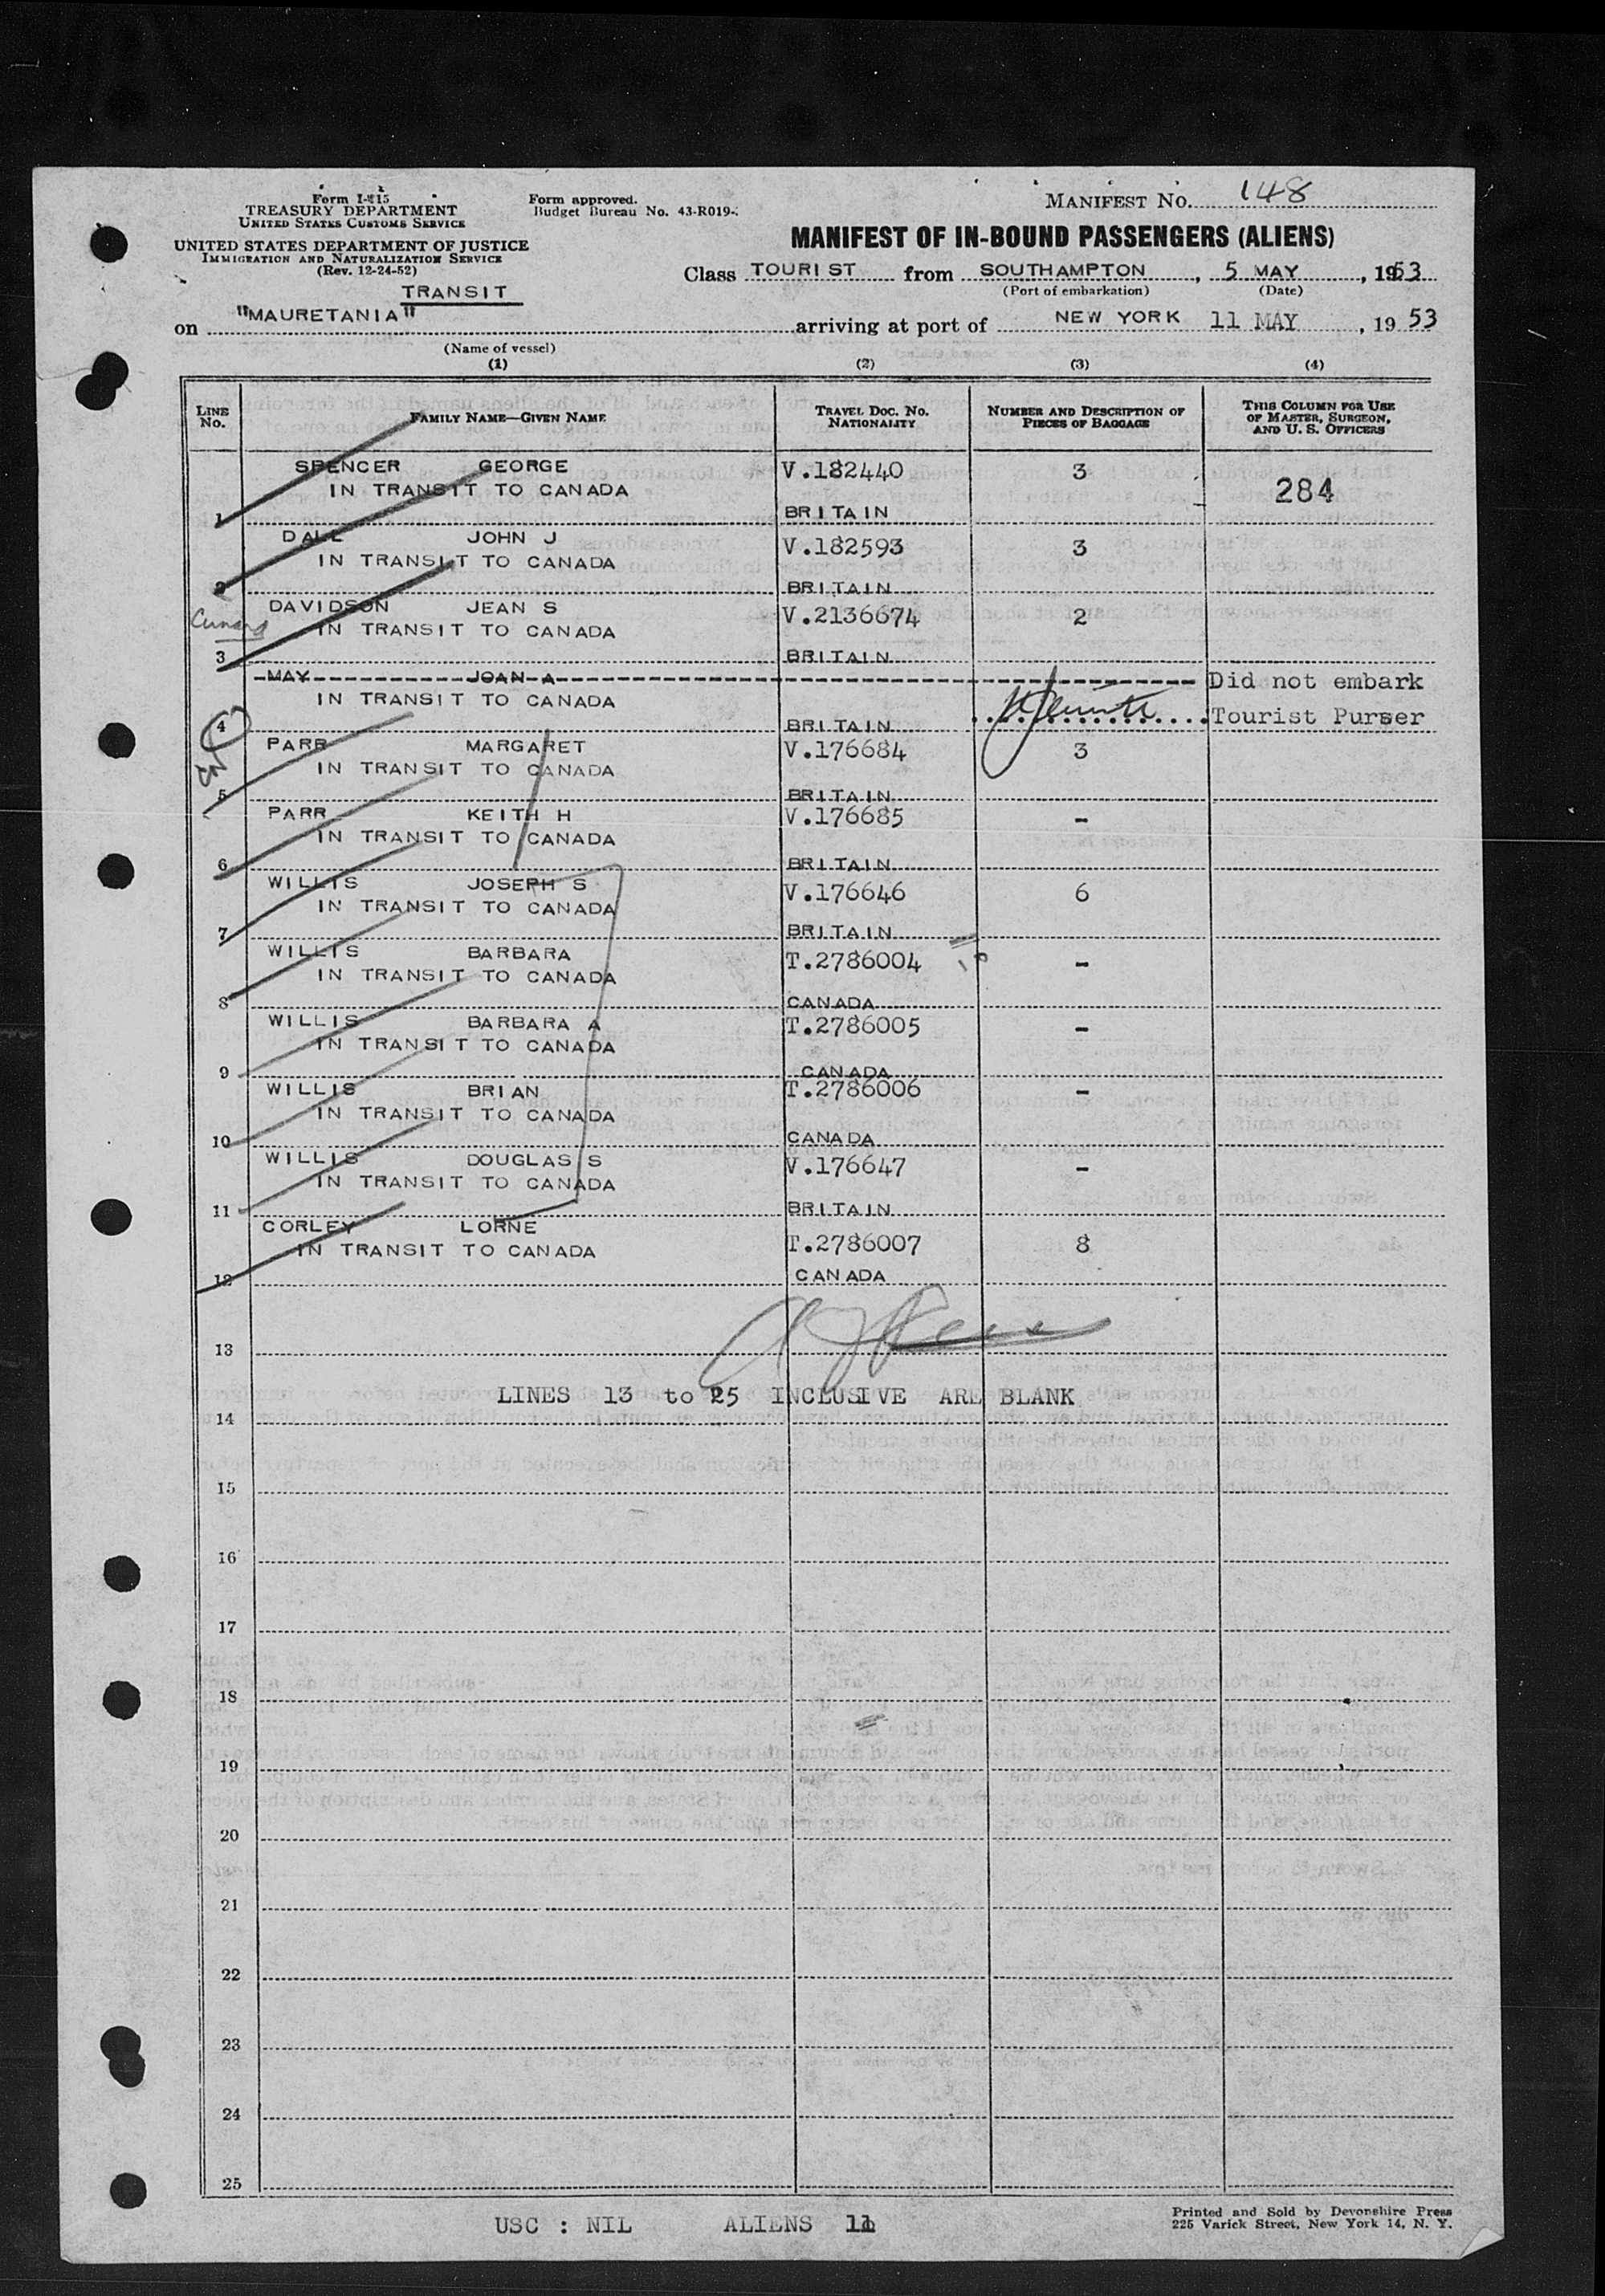 Form I-415
TREASURY DEPARTMENT
UNITED STATES CUSTOMS SERVICE
UNITED STATES DEPARTMENT OF JUSTICE
IMMIGRATION AND NATURALIZATION SERVICE
(Rev. 12-24-52)
Form approved.
Budget Bureau No. 43-R019-
MANIFEST No. 148
MANIFEST OF IN-BOUND PASSENGERS (ALIENS)
Class TOURIST from SOUTHAMPTON, 5 MAY, 1953
(Port of embarkation) (Date)
TRANSIT
on "MAURETANIA" arriving at port of NEW YORK 11 MAY, 19 53
(Name of vessel)
(1) (2) (3) (4)
LINE No. FAMILY NAME—GIVEN NAME TRAVEL DOC. No. NATIONALITY NUMBER AND DESCRIPTION OF PIECES OF BAGGAGE THIS COLUMN FOR USE OF MASTER, SURGEON, AND U. S. OFFICERS
SPENCER GEORGE V.182440 3
IN TRANSIT TO CANADA 284
1 BRITAIN
DALL JOHN J V.182593 3
IN TRANSIT TO CANADA
2 BRITAIN
DAVIDSON JEAN S V.2136674 2
Cunard IN TRANSIT TO CANADA
3 BRITAIN
MAY JOAN A Did not embark
IN TRANSIT TO CANADA
4 BRITAIN Tourist Purser
PARR MARGARET V.176684 3
IN TRANSIT TO CANADA
5 BRITAIN
PARR KEITH H V.176685 -
IN TRANSIT TO CANADA
6 BRITAIN
WILLIS JOSEPH S V.176646 6
IN TRANSIT TO CANADA
7 BRITAIN
WILLIS BARBARA T.2786004 -
IN TRANSIT TO CANADA
8 CANADA
WILLIS BARBARA A T.2786005 -
IN TRANSIT TO CANADA
9 CANADA
WILLIS BRIAN T.2786006 -
IN TRANSIT TO CANADA
10 CANADA
WILLIS DOUGLAS S V.176647 -
IN TRANSIT TO CANADA
11 BRITAIN
CORLEY LORNE T.2786007 8
IN TRANSIT TO CANADA
12 CANADA
13
LINES 13 to 25 INCLUSIVE ARE BLANK
14
15
16
17
18
19
20
21
22
23
24
25
USC : NIL ALIENS 11
Printed and Sold by Devonshire Press
225 Varick Street, New York 14, N. Y.